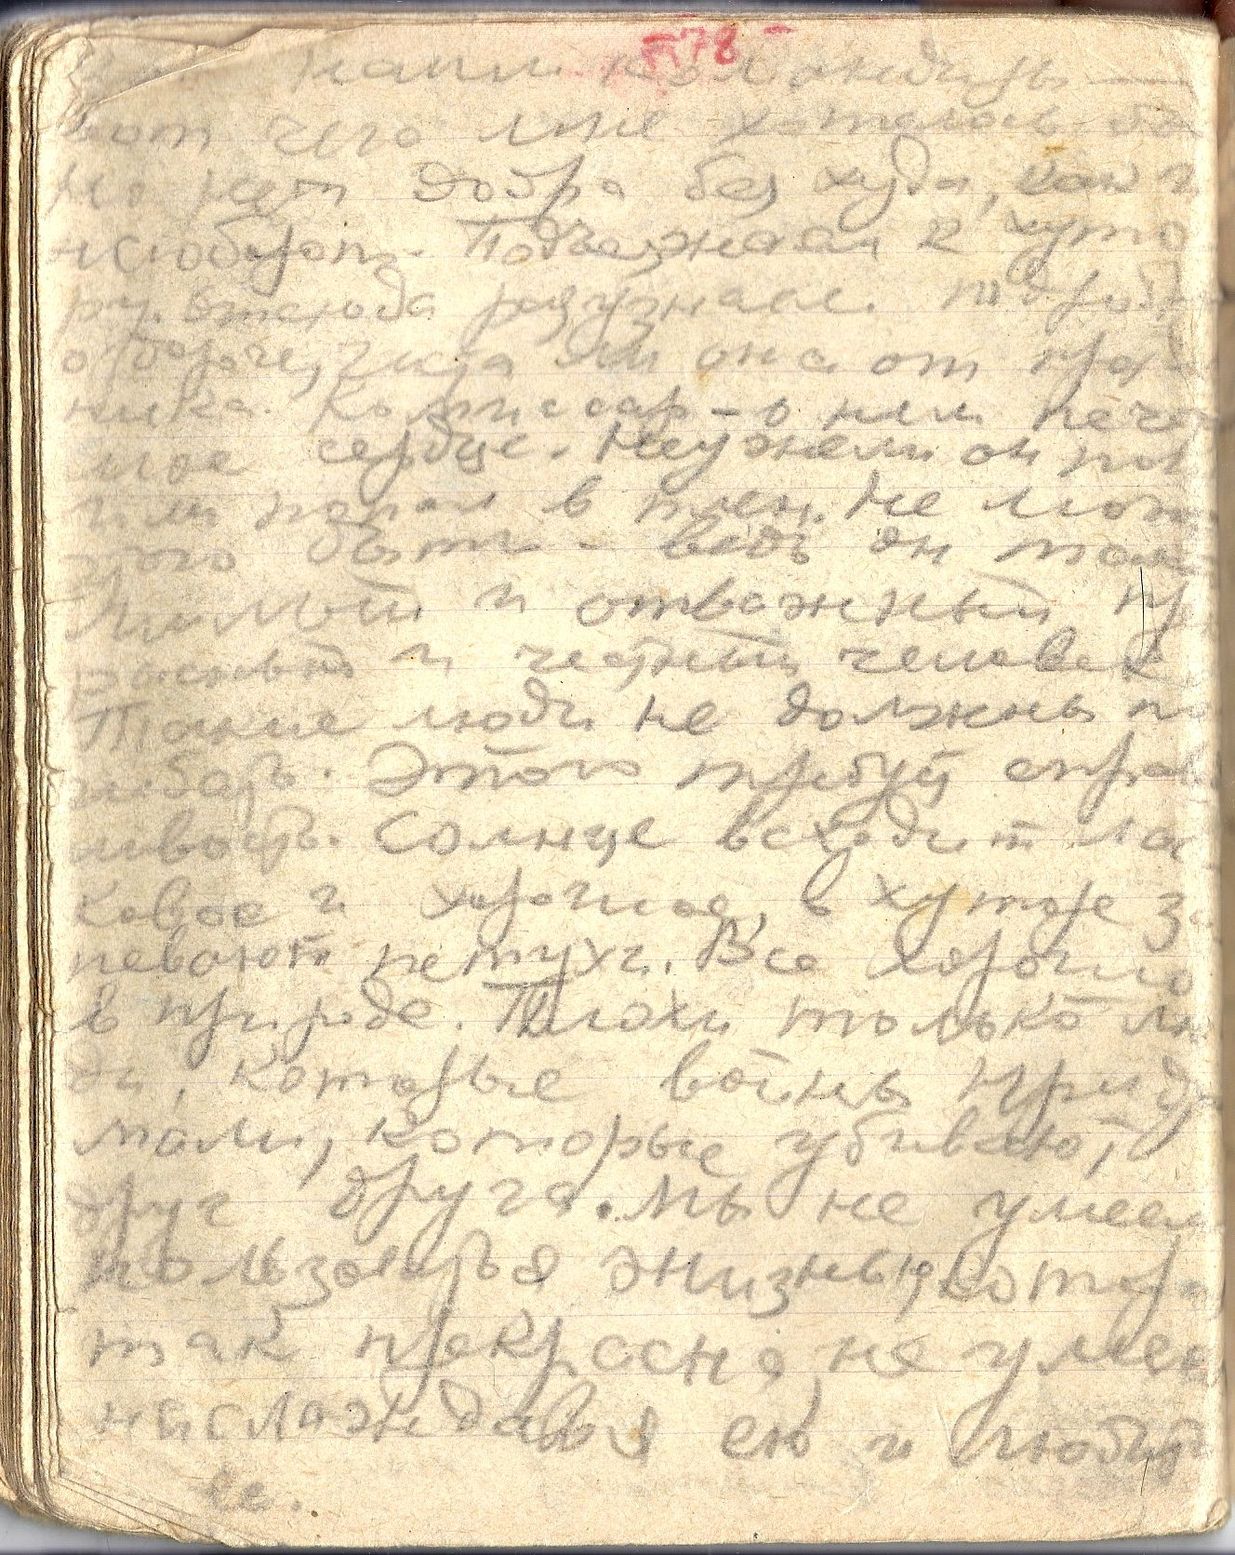 78
нами командиры —
вот чего мне хотелось бы
Но нет добра без худа, как и
наоборот. Подъезжая к хуто
ру, отсюда разузнаем
о дороге, чиста ли она от
ника. Комиссар – о нем печа
мое сердце. Неужели он
или попал в плен. Не мож
того быть – ведь он
милый и отважный
и честный человек
Такие люди не должны по
гибать. Этого требует спра
ивость. Солнце всходит лас
ковое и хорошее, в хуторе за
певают петухи. Все хорошо
в природе. Плохи только лю
ди, которые войны приду
мали, которые убивают
друг друга. Мы не умеем
пользоваться жизнью, котор
так прекрасна, не умеем
наслаждаться ею и любить
ее.